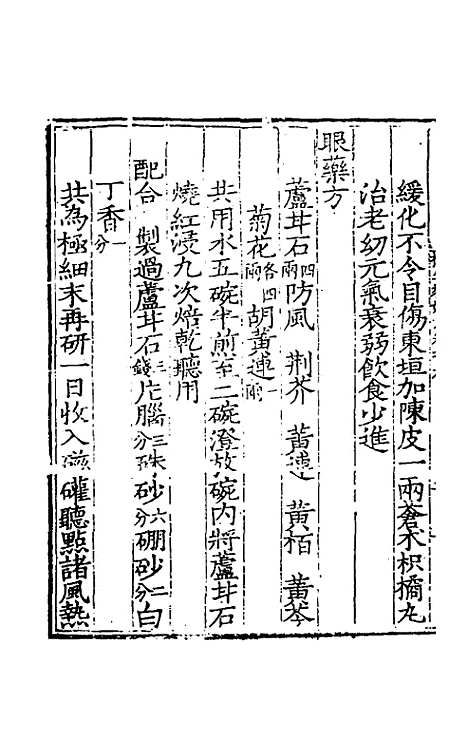 緩化不令目傷東垣加陳皮一兩蒼术枳橘丸
治老幼元氣衰弱飲食少進
眼藥方
蘆井石四兩防風　荆芥　黃連　黃栢　黃芩
菊花各四兩胡黃連一兩
共用水五碗半煎至二碗澄放碗内將蘆井石
燒紅浸九次焙乾聽用
配合　製過蘆井石三錢片腦三分硃砂六分硼砂二分白
丁香一分
共為極細末再研一日收入磁礶聽點諸風熱